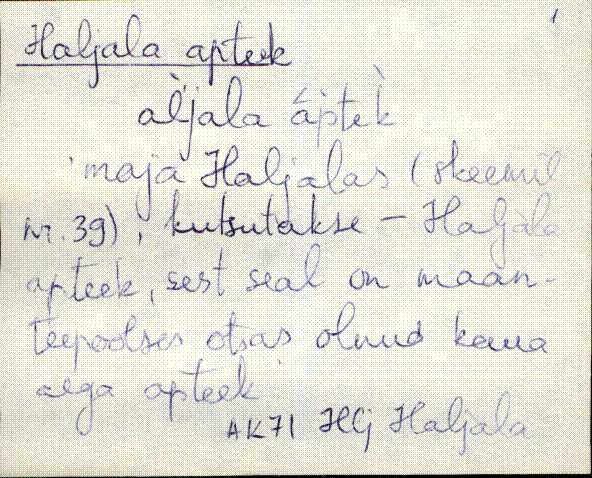 1
Haljala apteek
al̀jala áptek̀
maja Haljalas (skeemil
nr. 39), kutsutakse – Haljala
apteek, sest seal on maan-
teepoolses otsas olnud kaua
aega apteek
AK71 Hlj Haljala